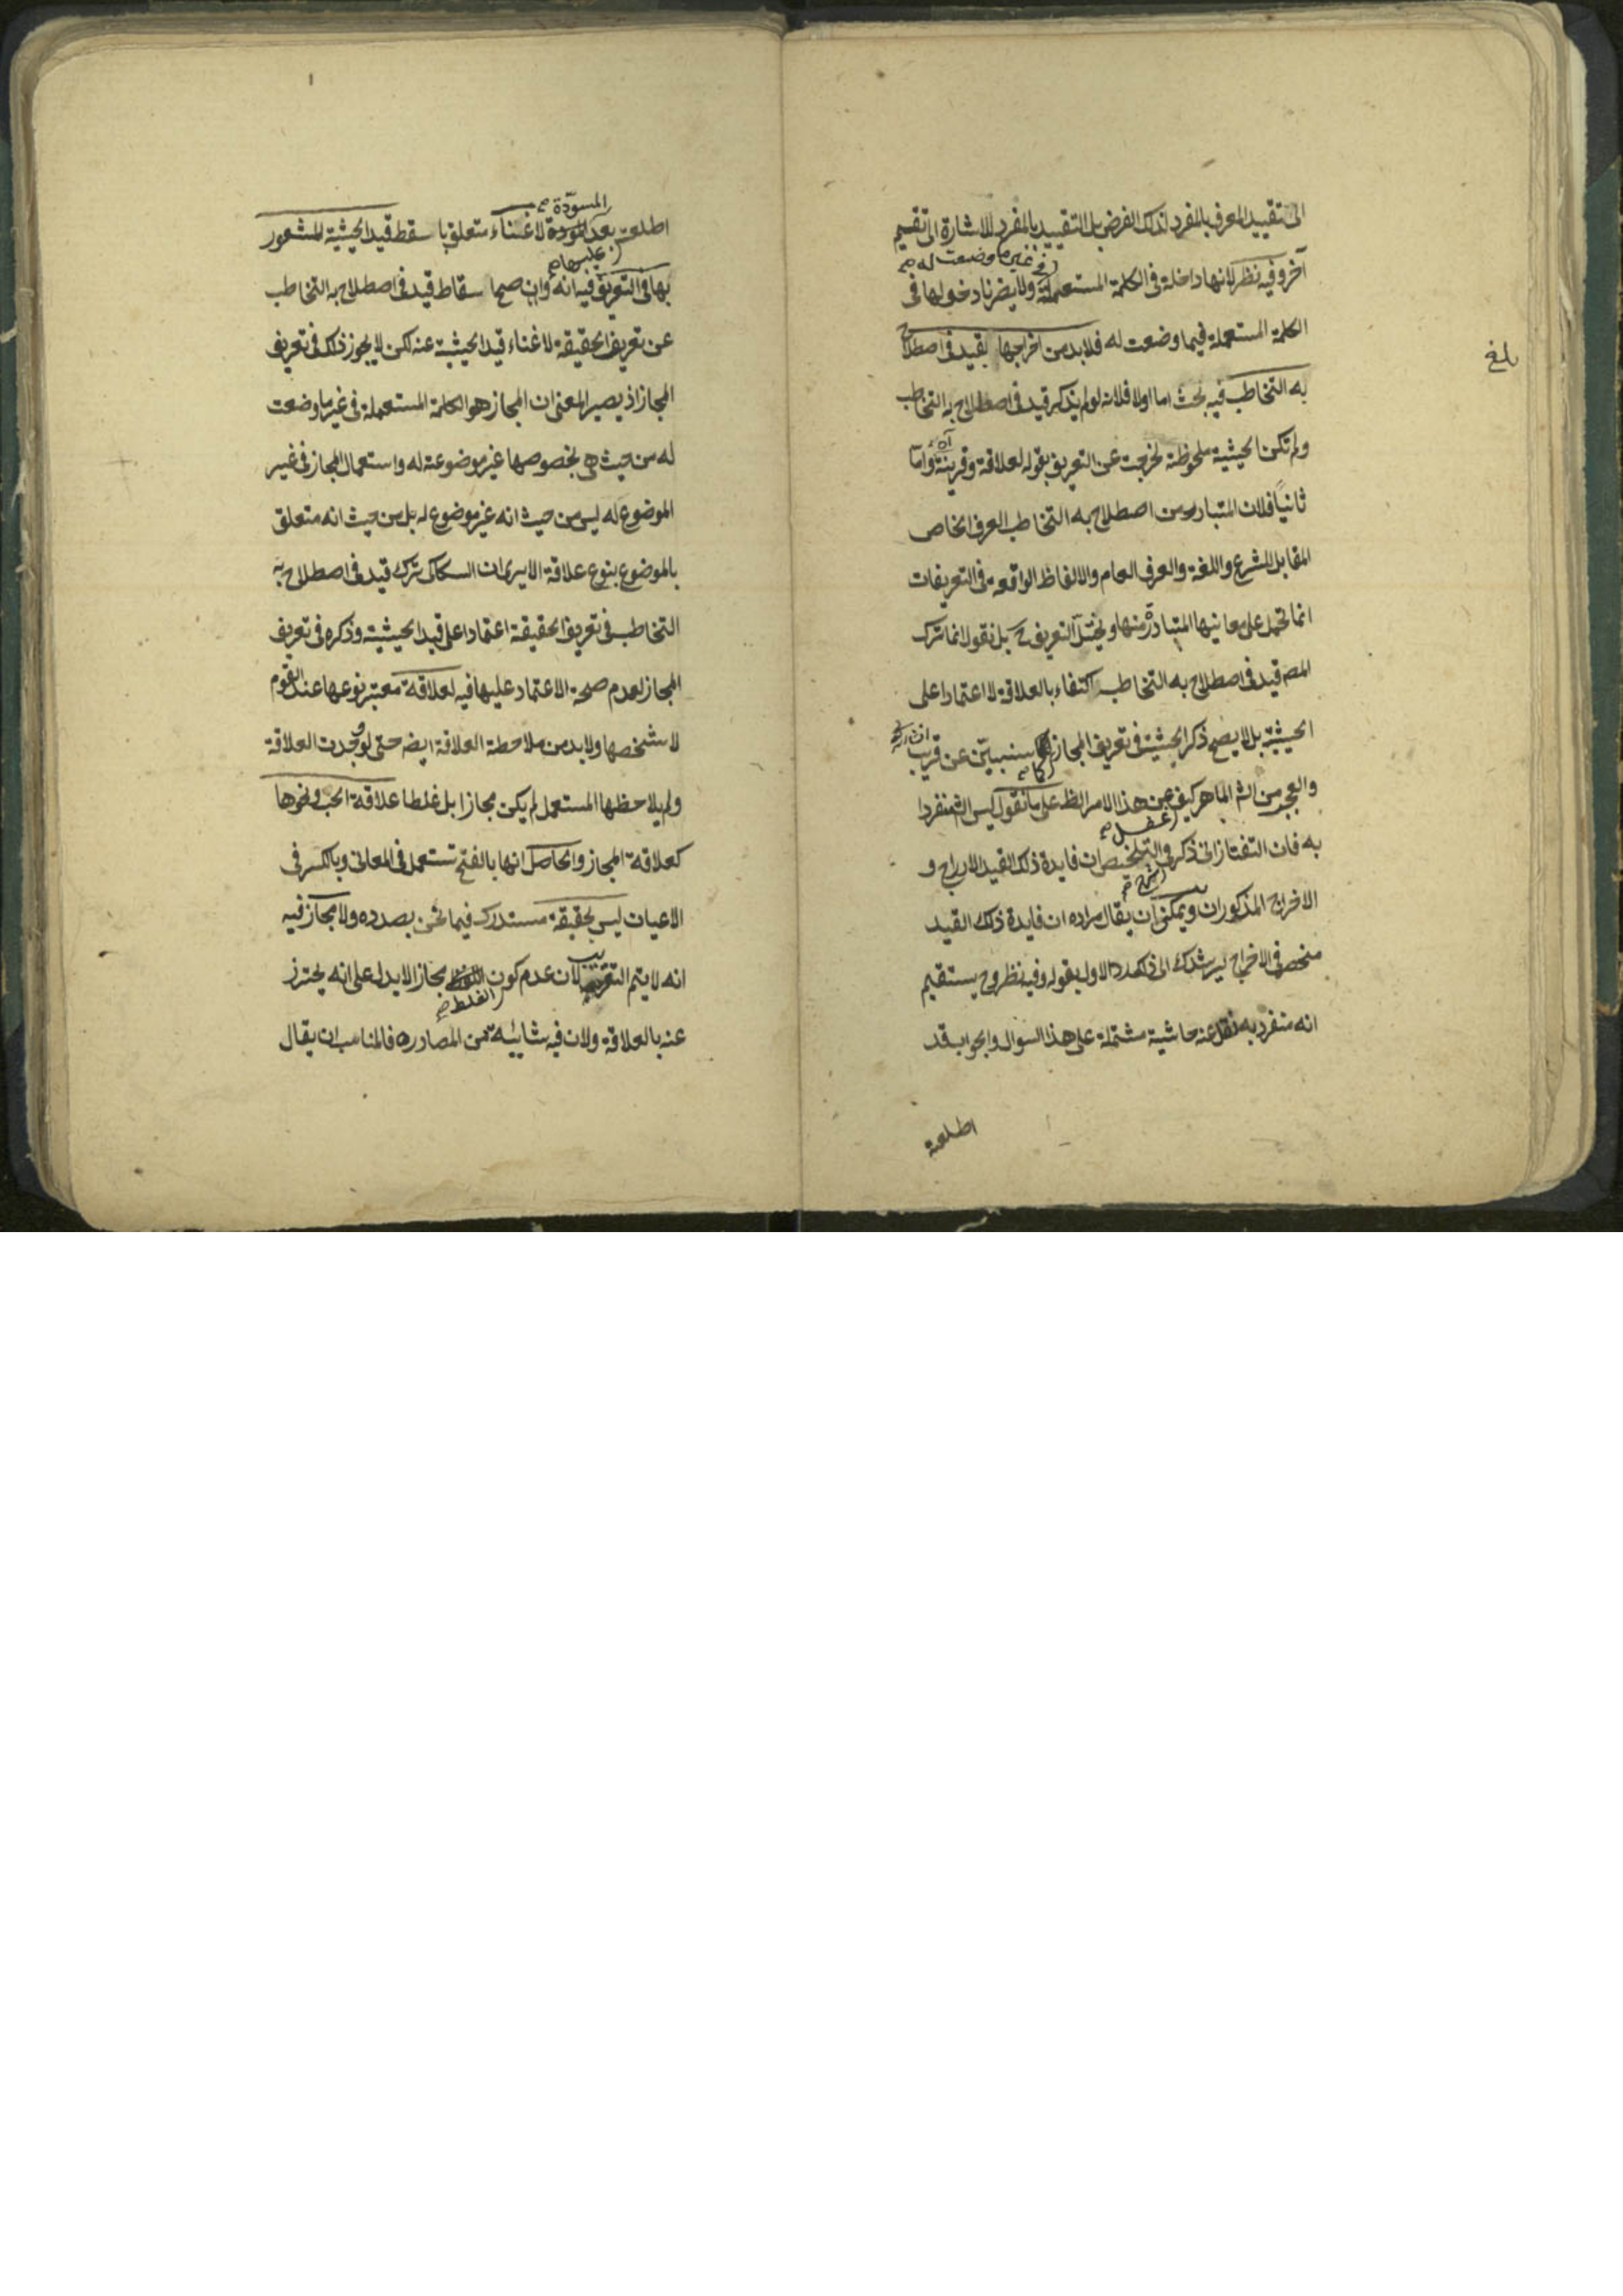 الى تقييد المعرف بالمفرد لذلك الغرض بل التقييد بالمفرد للاشارة الى تقسيم
في غير ما وضعت له صح
آخر وفيه نظر لانها داخلة في الكلمة المستعملة ولا يضرنا دخولها في
الكلمة المستعملة فيما وضعت له فلابد من اخراجها بقيد في اصطلاح
بلغ
به التخاطب فيه بحث اما اولا فلانه لو لم يذكر قيد في اصطلاح به التخاطب
ولم تكن الحيثية ملحوظة لخرجت عن التعريف بقوله لعلاقة وقرينة اه واما
ثانيا فلان المتبادر من اصطلاح به التخاطب العرف الخاص
المقابل للشرع واللغة والعرف العام والالفاظ الواقعة في التعريفات
انما تحمل على معانيها المتبادرة منها ويختل التعريف ح بل نقول انما ترك
المص قيد في اصطلاح به التخاطب اكتفاء بالعلاقة لا اعتمادا على
الحيثية بل لا يصح ذكر الحيثية في تعريف المجاز كما سنبين عن قريب
كما صح
والعجب من الماهر كيف عن هذا الامر الظ على ما نقول ليس منفردا
غفل صح
به فان التفتازاني ذكر والتلخيص ان فايدة ذلك القيد الادراج و
شرح صح
الاخراج المذكوران ويمكن ان يقال مراده ان فايدة ذلك القيد
منحصر في الاخراج ليرشدك الى ذلك الاول بقوله وفيه نظر وح يستقيم
انه منفرد به نقل عنه حاشية مشتملة على هذا السوال والجواب قد
اطلعت
المسودة صح
اطلعت بعد لا غناء متعلق با سقط قيد الحيثية للشعور
عليها صح
بها في التعريف فيه انه وان صح اسقاط قيد في اصطلاح به التخاطب
عن تعريف الحقيقة لاغناء قيد الحيثية عنه لكن لا يجوز ذلك في تعريف
المجاز اذ يصير المعنى ان المجاز هو الكلمة المستعملة في غير ما وضعت
له من حيث هي بخصوصها غير موضوعة له واستعمال المجاز في غير
الموضوع له ليس من حيث انه غير موضوع له بل من حيث انه متعلق
بالموضوع بنوع علاقة الا يرى ان السكاكى ترك قيد في اصطلاح به
التخاطب في تعريف الحقيقة اعتمادا على قيد الحيثية وذكره في تعريف
المجاز لعدم صحة الاعتماد عليها فيه لعلاقة معتبر نوعها عند القوم
لا شخصها ولابد من ملاحظة العلاقة ايضا حتى لو وجدت العلاقة
ولم يلاحظها المستعمل لم يكن مجازا بل غلطا علاقة الحب ونحوها
كعلاقة المجاز والحاصل انها بالفتح تستعمل في المعانى وبالكسر في
الاعيان ليس بحقيقة مستدرك فيما نحن بصدده ولا مجاز فيه
انه لا يتم التقريب لان عدم كون مجازا لا يدل على انه يحترز
الغلط صح
عنه بالعلاقة ولان فيه شايبة من المصادره فالمناسب ان يقال